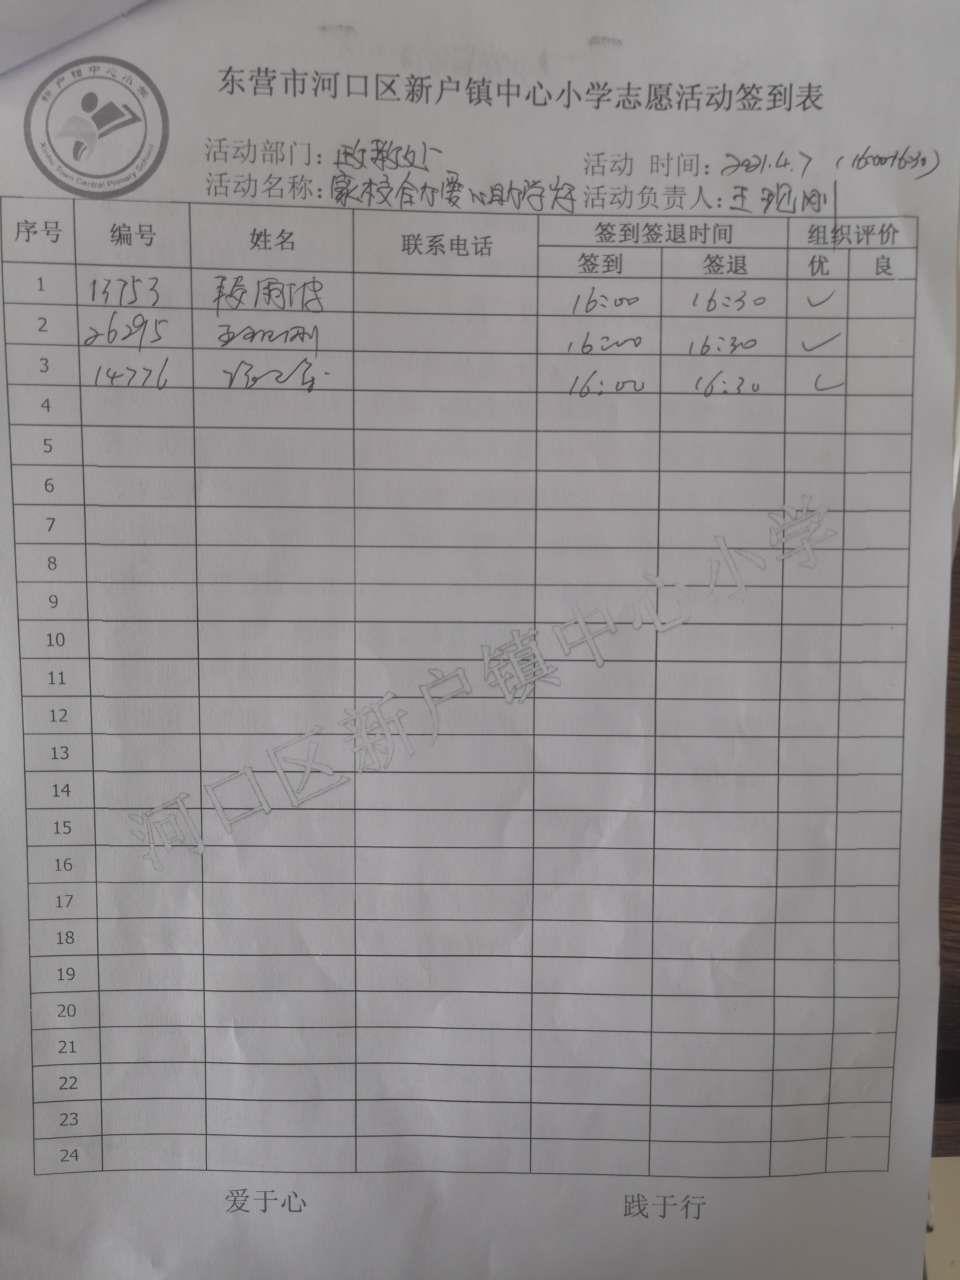 东营市河口区新户镇中心小学志愿活动签到表
新户镇中心小学
Xinhu Town Central Primary School
活动部门：政教处
活动 时间：2021.4.7（16:00-16:30）
活动名称：家校合力爱心助学好
活动负责人：王观刚
序号 编号 姓名 联系电话 签到签退时间 组织评价
签到 签退 优 良
1 13753 16:00 16:30 ✓
2 26295 王观刚 16:00 16:30 ✓
3 14776 16:00 16:30 ✓
4
5
6
7
8
9
10
11
12
13
14
15
16
17
18
19
20
21
22
23
24
河口区新户镇中心小学
爱于心 践于行